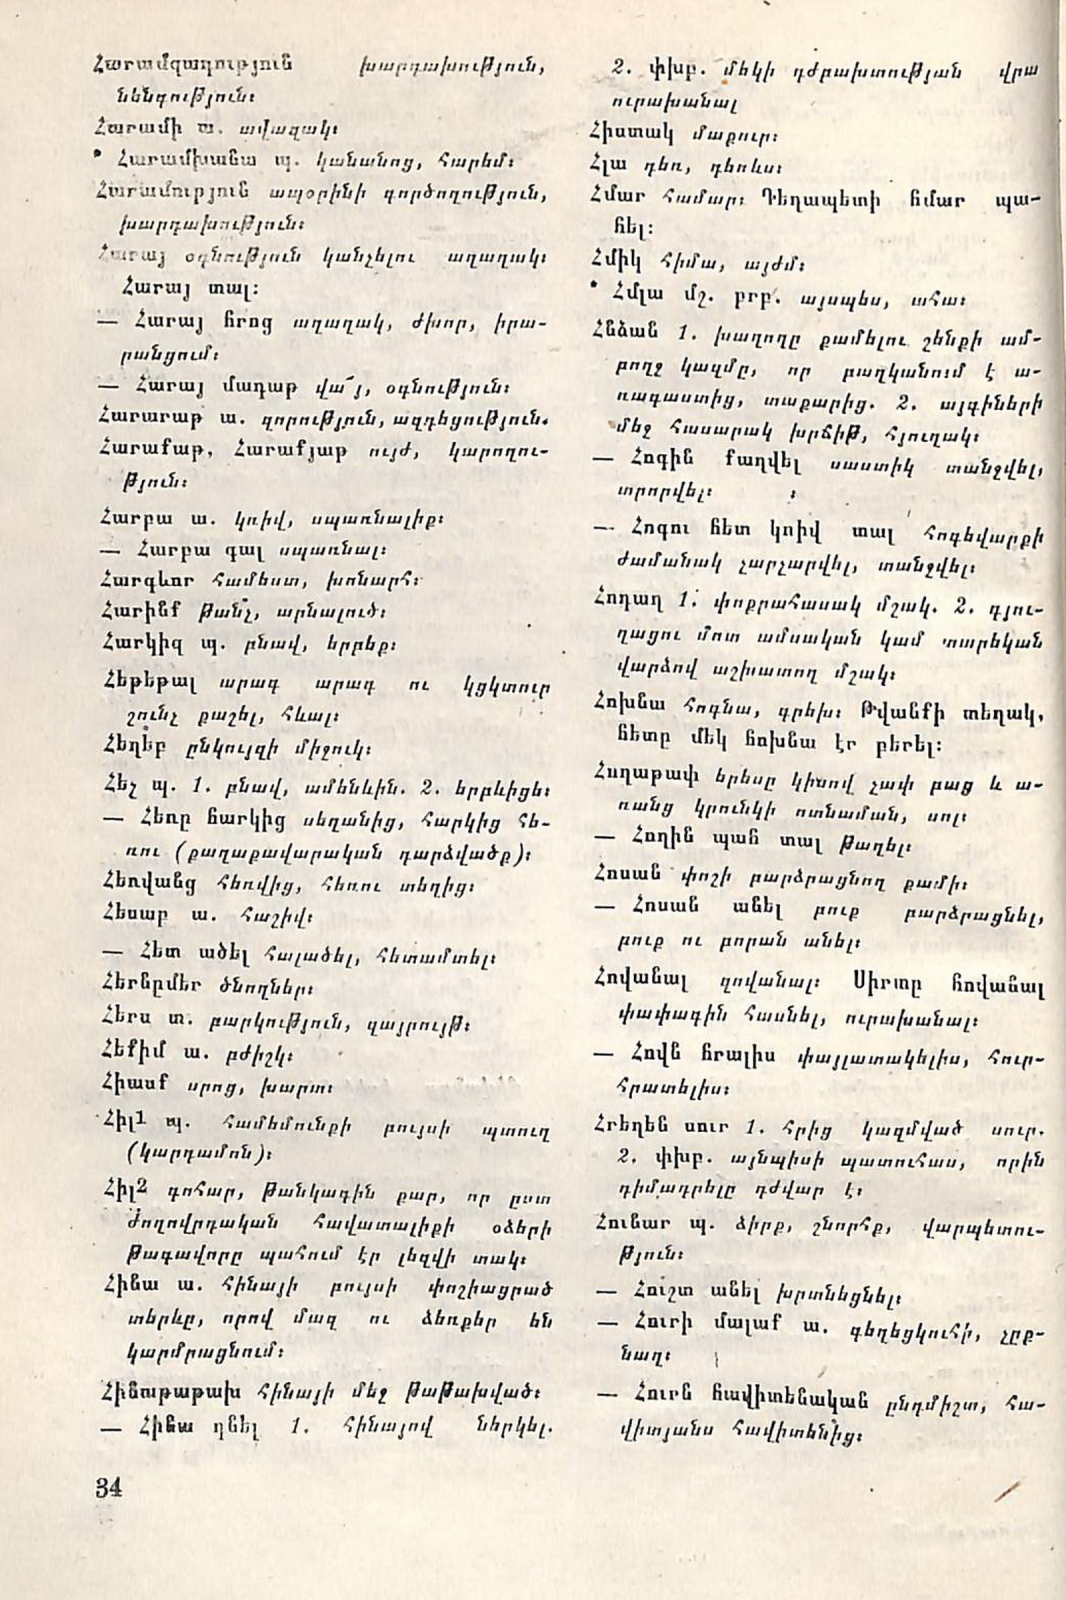 Հարամզադություն խարդախություն,
նենգություն։
Հարամի ա. ավազակ։
* Հարամխանա պ. կանանոց, հարեմ։
Հարամություն ապօրինի գործողություն,
խարդախություն։
Հարայ օգնություն կանչելու աղաղակ։
Հարայ տալ։
— Հարայ հրոց աղաղակ, ժխոր, իրա-
րանցում։
— Հարայ մադաթ վա՜յ, օգնություն։
Հարարաթ ա. զորություն, ազդեցություն.
Հարաքաթ, Հարաքյաթ ույժ, կարողու-
թյուն։
Հարբա ա. կռիվ, սպառնալիք։
— Հարբա գալ սպառնալ։
Հարգևոր համեստ, խոնարհ։
Հարինք թանչ, արնալուծ։
Հարկիզ պ. բնավ, երբեք։
Հեթեթալ արագ արագ ու կցկտուր
շունչ քաշել, հևալ։
Հեղեբ ընկույզի միջուկ։
Հեչ պ. 1. բնավ, ամենևին. 2. երբևիցե։
— Հեռը հարկից սեղանից, հարկից հե-
ռու (քաղաքավարական դարձվածք)։
Հեռվանց հեռվից, հեռու տեղից։
Հեսաբ ա. հաշիվ։
— Հետ ածել հալածել, հետամտել։
Հերնըմեր ծնողներ։
Հերս տ. բարկություն, զայրույթ։
Հեքիմ ա. բժիշկ։
Հիասք սրոց, խարտ։
Հիլ1 պ. համեմունքի բույսի պտուղ
(կարդամոն)։
Հիլ2 գոհար, թանկագին քար, որ ըստ
ժողովրդական հավատալիքի օձերի
թագավորը պահում էր լեզվի տակ։
Հինա ա. հինայի բույսի փոշիացրած
տերևը, որով մազ ու ձեռքեր են
կարմրացնում։
Հինաթաթախ հինայի մեջ թաթախված։
— Հինա դնել 1. հինայով ներկել.
34
2. փխբ. մեկի դժբախտության վրա
ուրախանալ
Հիստակ մաքուր։
Հլա դեռ, դեռևս։
Հմար համար։ Դեղապետի հմար պա-
հել։
Հմիկ հիմա, այժմ։
* Հմլա մշ. բրբ. այսպես, ահա։
Հնձան 1. խաղողը քամելու շենքի ամ-
բողջ կազմը, որ բաղկանում է ա-
ռագաստից, տաքարից. 2. այգիների
մեջ հասարակ խրճիթ, հյուղակ։
— Հոգին քաղվել սաստիկ տանջվել,
տրորվել։
— Հոգու հետ կռիվ տալ հոգեվարքի
ժամանակ չարչարվել, տանջվել։
Հոդաղ 1. փոքրահասակ մշակ. 2. գյու-
ղացու մոտ ամսական կամ տարեկան
վարձով աշխատող մշակ։
Հոխնա հոգնա, գրեխ։ Թվանքի տեղակ,
հետը մեկ հոխնա էր բերել։
Հողաթափ երեսը կիսով չափ բաց և ա-
ռանց կրունկի ոտնաման, սոլ։
— Հողին պահ տալ թաղել։
Հոսան փոշի բարձրացնող քամի։
— Հոսան անել բուք բարձրացնել,
բուք ու բորան անել։
Հովանալ զովանալ։ Սիրտը հովանալ
փափագին հասնել, ուրախանալ։
— Հովն հրալիս փայլատակելիս, հուր-
հրատելիս։
Հրեղեն սուր 1. հրից կազմված սուր.
2. փխբ. այնպիսի պատուհաս, որին
դիմադրելը դժվար է։
Հունար պ. ձիրք, շնորհք, վարպետու-
թյուն։
— Հուշտ անել խրտնեցնել։
— Հուրի մալաք ա. գեղեցկուհի, չըք-
նաղ։
— Հուրն հավիտենական ընդմիշտ, հա-
վիտյանս հավիտենից։